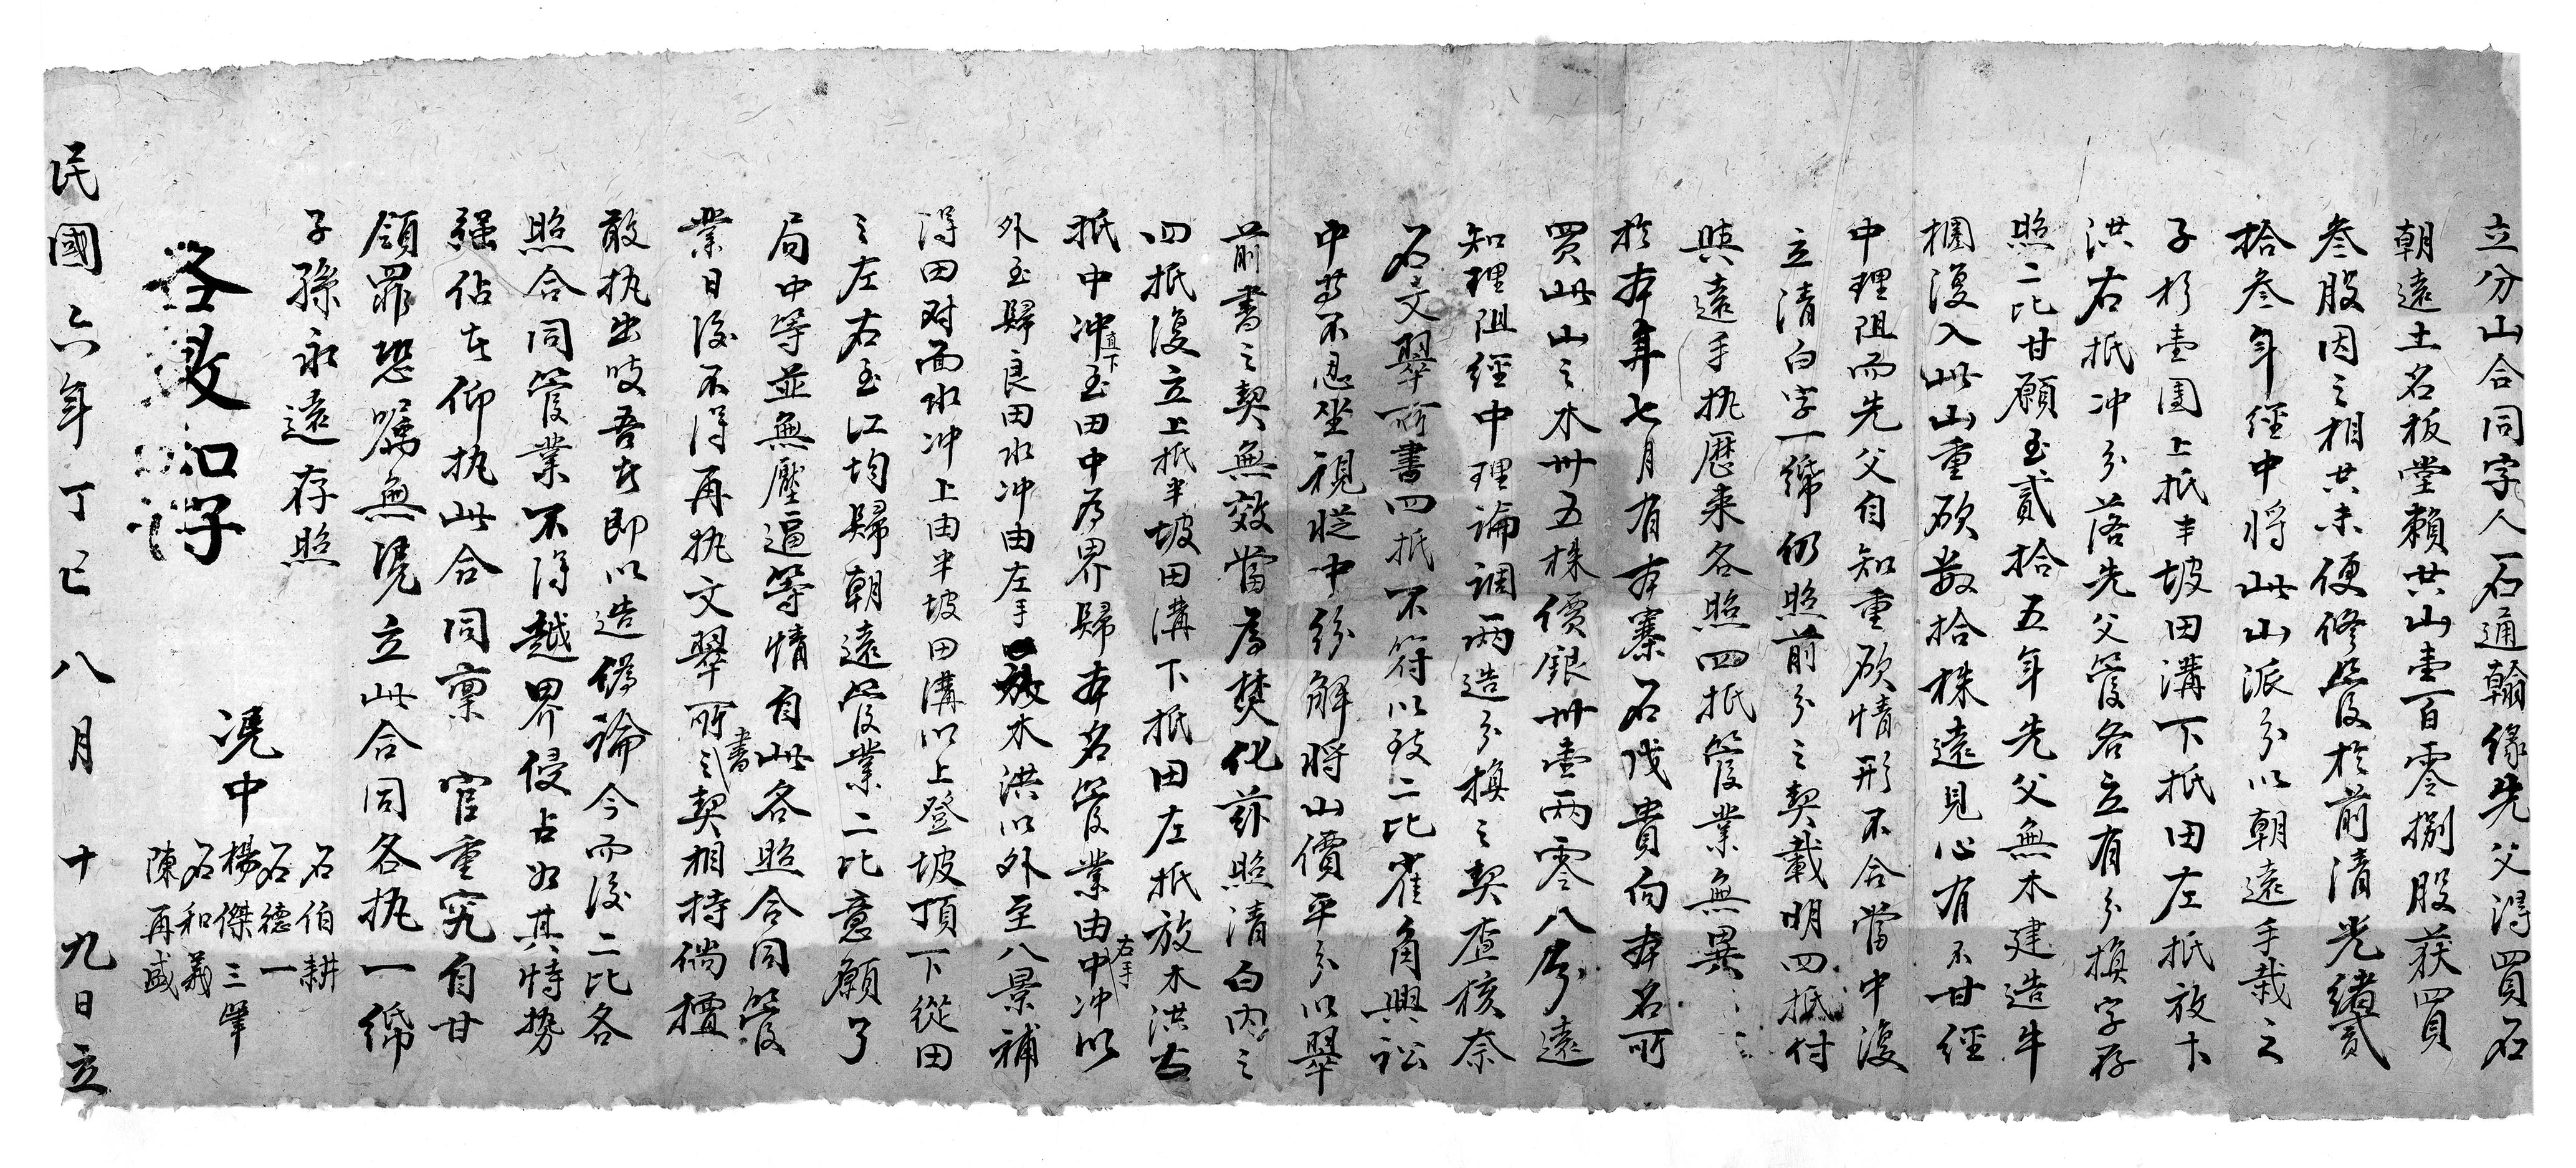 立分山合同字人石通翰緣先父得買石
朝遠土名板堂賴共山壹百零捌股獲買
叁股因之相共未便修管於前清光緒貳
拾叁年經中將此山派分以朝遠手栽之
子杉壹團上抵半坡田溝下抵田左抵放木
洪右抵冲分落先父管各立有分換字存
照二比甘願至貳拾五年先父無木建造牛
棞復入此山重砍數拾株遠見心有不甘經
中理阻而先父自知重砍情形不合當中復
立清白字一紙仍照前分之契載明四抵付
與遠手执歷来各照四抵管業無異
於本年七月有本寨石茂貴向本名所
買此山之木卅五株價銀卅壹两零八分遠
知理阻經中理論調两造分换之契查核奈
石文翠所書四抵不符以致二比雀角興訟
中等不忍坐視從中紛解將山價平分以翠
前書之契無效當為焚化茲照清白内之
四抵復立上抵半坡田溝下抵田左抵放木洪右
抵中冲直下至田中為界歸本名管業由中冲右手以
外至歸良田水冲由左手放木洪以外至八景補
得田对面水冲上由半坡田溝以上登坡頂下從田
之左右至江均歸朝遠管業二比意願了
局中等並無壓逼等情自此各照合同管
業日後不得再执文翠所書之契相持倘擅
敢执出吱吾者即以造偽論今而後二比各
照合同管業不得越界侵占如其恃勢
强佔者仰执此合同禀 官重究自甘
領罪恐嘱無凴立此合同各执一紙
子孫永遠存照
凴中
石伯耕
石德一
楊傑三筆
石和義
陳再盛
民國六年丁巳八月十九日立